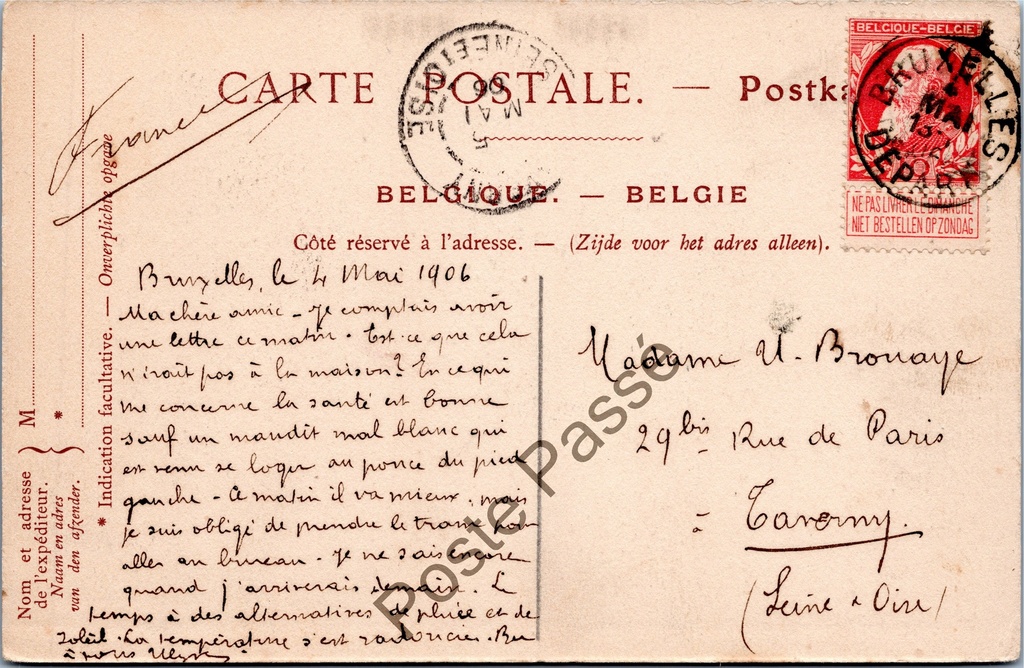 CARTE POSTALE. — Postka
BELGIQUE. — BELGIE
Côté réservé à l'adresse. — (Zijde voor het adres alleen).
France
Nom et adresse de l'expéditeur.
Naam en adres van den afzender.
M
*
* Indication facultative. — Onverplichte opgave
SEINE ET OISE
5
MAI
06
BELGIQUE-BELGIE
NE PAS LIVRER LE DIMANCHE
NIET BESTELLEN OP ZONDAG
BRUXELLES
MAI
13
DEPART
Bruxelles, le 4 Mai 1906
Ma chère amie - Je comptais avoir
une lettre ce matin. Est-ce que cela
n'irait pas à la maison? En ce qui
me concerne la santé est bonne
sauf un maudit mal blanc qui
est venu se loger au pouce du pied
gauche - Ce matin il va mieux. mais
je suis obligé de prendre le tram pour
aller au bureau - Je ne sais encore
quand j'arriverais demain. Le
temps à des alternatives de pluie et de
soleil. La température s'est radoucie. Bon
à vous
Madame U. Brouaye
29bis Rue de Paris
à Taverny.
(Seine & Oise)
Poste Passé